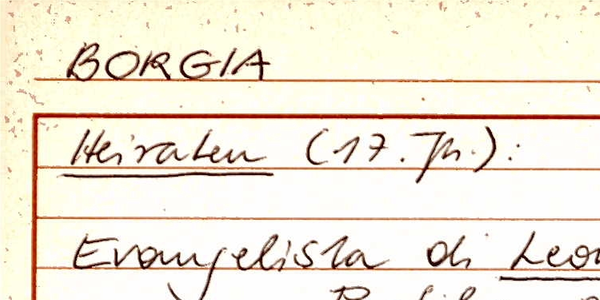 BORGIA
Heiraten (17. Jh.):
Evangelista di Leon